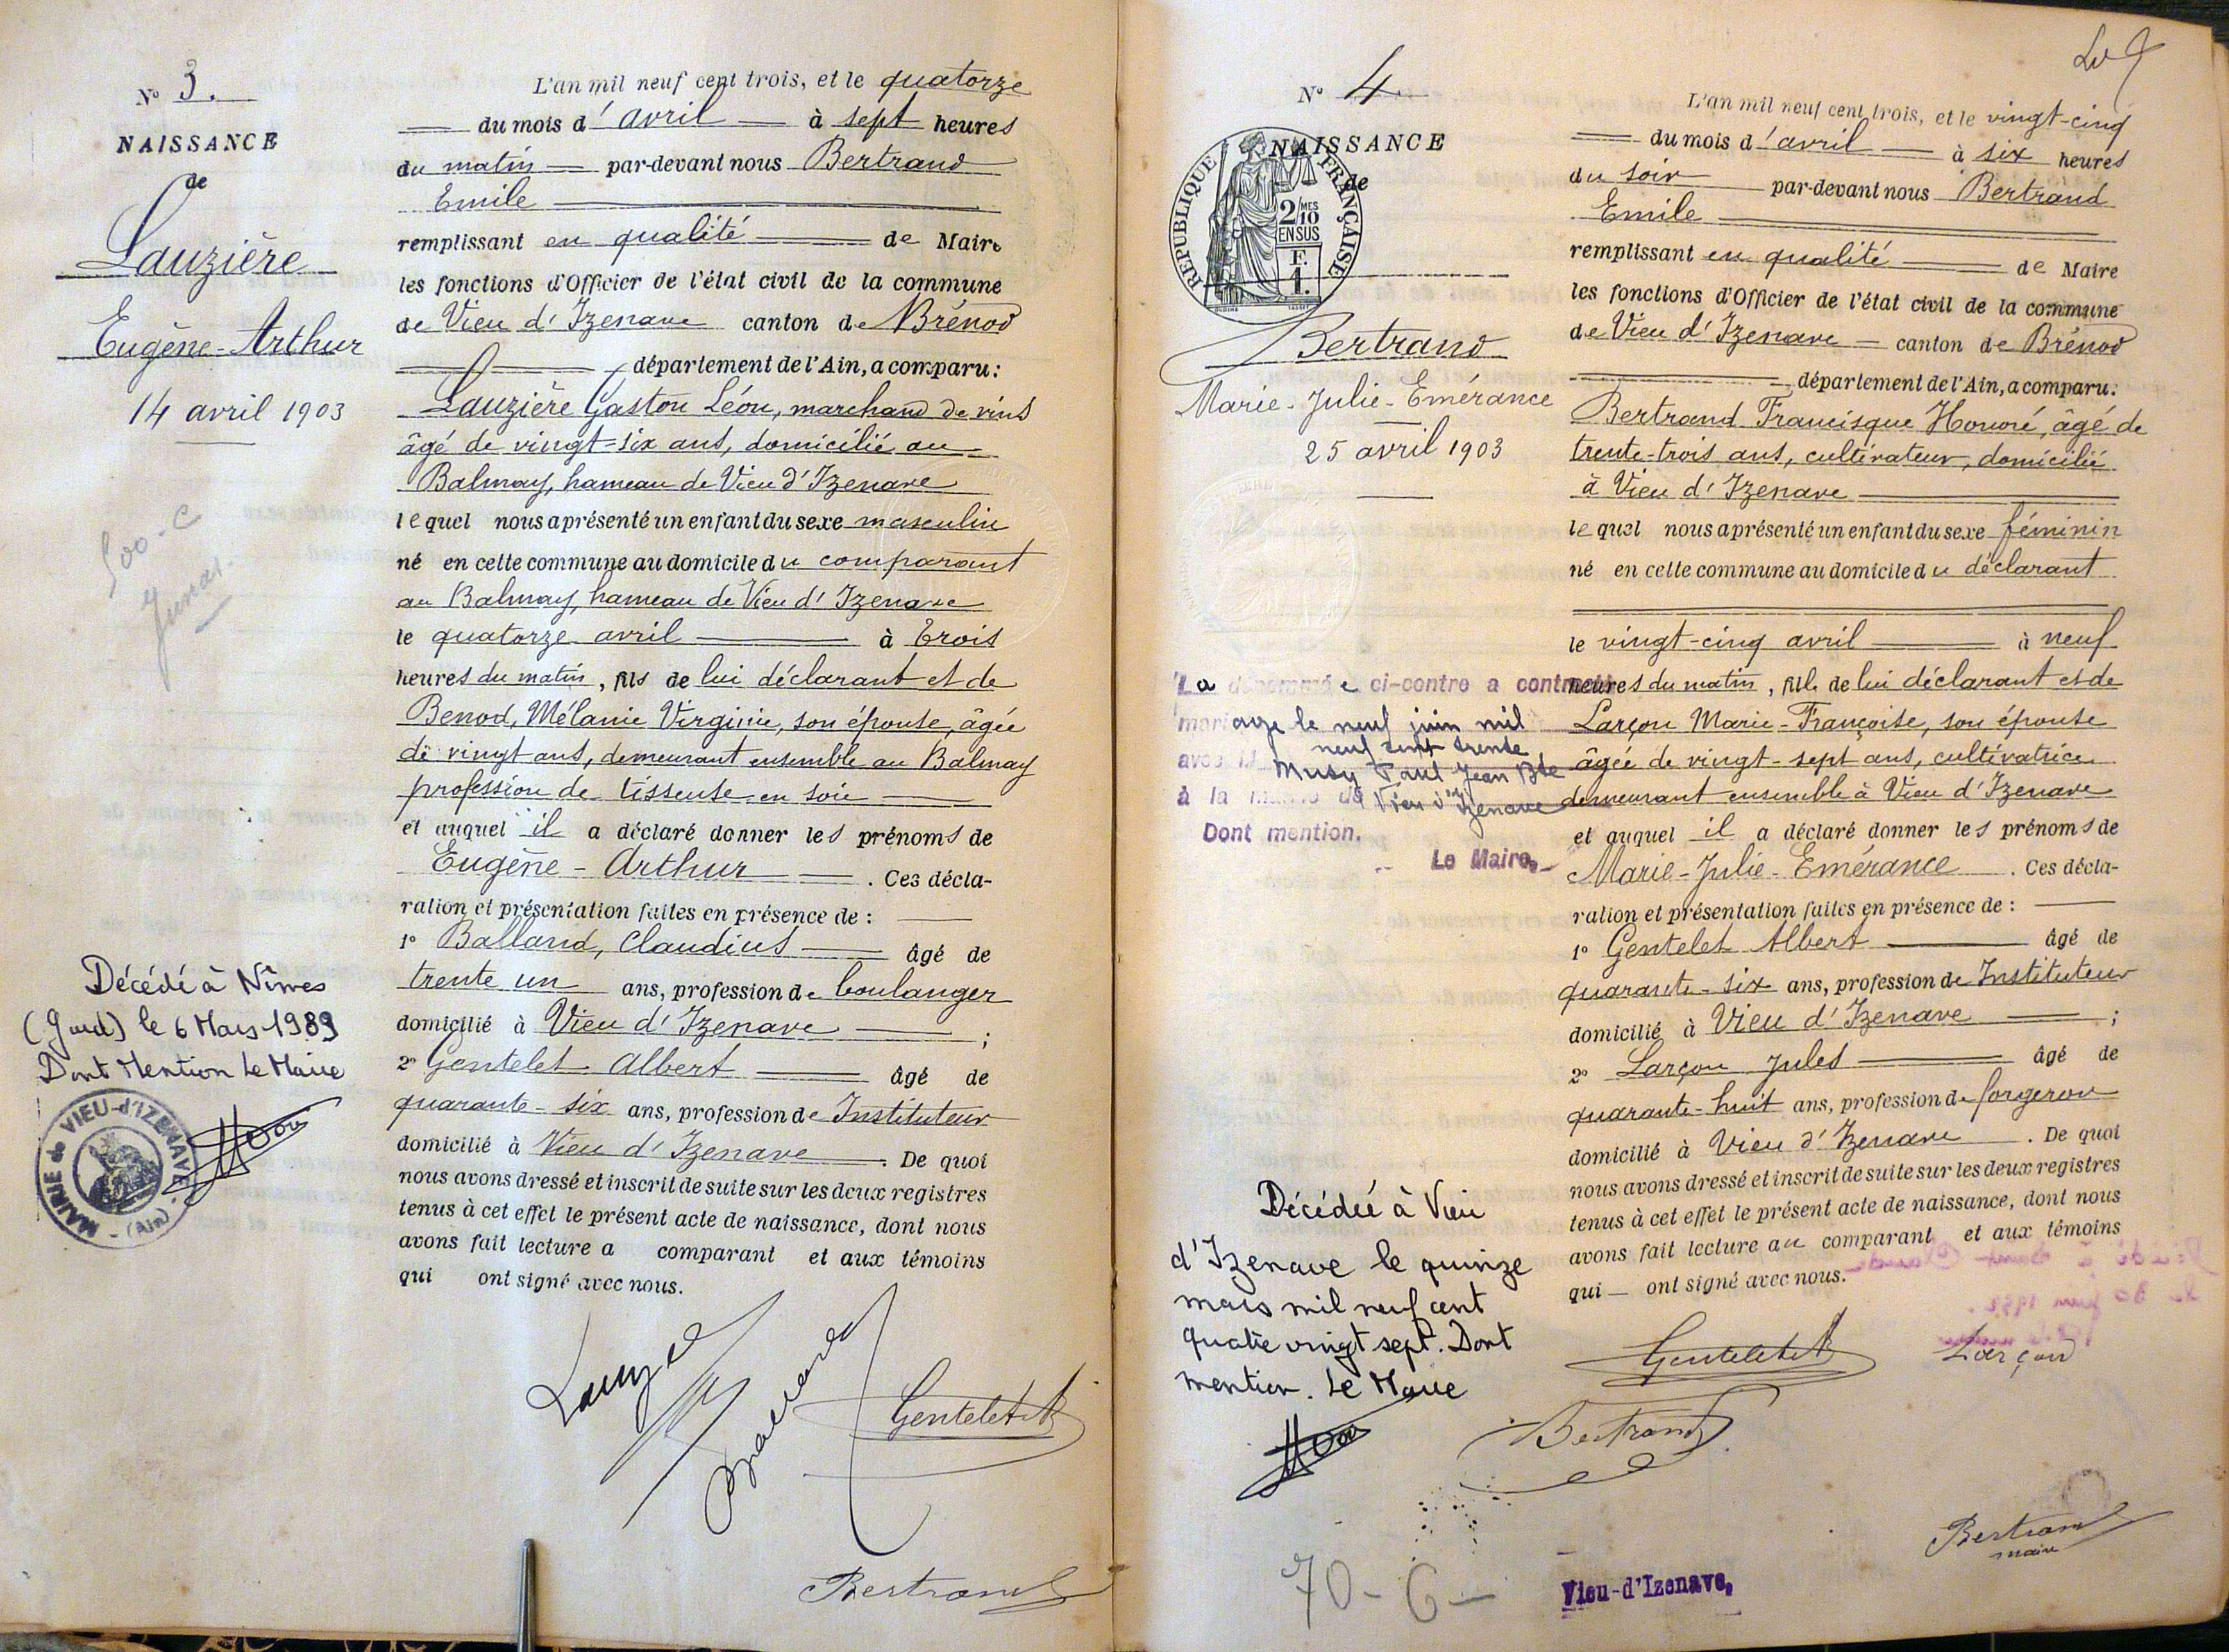 N° 3.
NAISSANCE
de
Lauzière
Eugène-Arthur
14 avril 1903
Décédé à Nîmes
(Gard) le 6 Mars 1989
Dont Mention Le Maire
MAIRIE de VIEU-d'IZENAVE
(Ain)
L'an mil neuf cent trois, et le quatorze
du mois d'avril à sept heures
du matin par-devant nous Bertrand
Emile
remplissant en qualité de Maire
les fonctions d'Officier de l'état civil de la commune
de Vieu d'Izenave canton de Brénod
département de l'Ain, a comparu:
Lauzière Gaston Léon, marchand de vins
âgé de vingt-six ans, domicilié au
Balmay, hameau de Vieu d'Izenave
lequel nous a présenté un enfant du sexe masculin
né en cette commune au domicile du comparant
au Balmay, hameau de Vieu d'Izenave
le quatorze avril à trois
heures du matin, fils de lui déclarant et de
Benod, Mélanie Virginie, son épouse, âgée
de vingt ans, demeurant ensemble au Balmay
profession de tisseuse en soie
et auquel il a déclaré donner les prénoms de
Eugène-Arthur. Ces décla-
ration et présentation faites en présence de :
1° Balland, Claudius âgé de
trente un ans, profession de boulanger
domicilié à Vieu d'Izenave ;
2° Gentelet Albert âgé de
quarante-six ans, profession de Instituteur
domicilié à Vieu d'Izenave. De quoi
nous avons dressé et inscrit de suite sur les deux registres
tenus à cet effet le présent acte de naissance, dont nous
avons fait lecture a comparant et aux témoins
qui ont signé avec nous.
Gentelet A
Bertrand
N° 4
NAISSANCE
de
REPUBLIQUE FRANÇAISE
2/10 MES
EN SUS
F.
1.
Bertrand
Marie-Julie-Emérance
25 avril 1903
La dénommée ci-contre a contracté
mariage le neuf juin mil
neuf cent trente
avec M Musy Paul Jean Bte
à la mairie de Vieu d'Izenave
Dont mention.
Le Maire,
Décédée à Vieu
d'Izenave le quinze
mars mil neuf cent
quatre vingt sept. Dont
mention. Le Maire
70-6-
L'an mil neuf cent trois, et le vingt-cinq
du mois d'avril à six heures
du soir par-devant nous Bertrand
Emile
remplissant en qualité de Maire
les fonctions d'Officier de l'état civil de la commune
de Vieu d'Izenave canton de Brénod
département de l'Ain, a comparu:
Bertrand Francisque Honoré, âgé de
trente-trois ans, cultivateur, domicilié
à Vieu d'Izenave
lequel nous a présenté un enfant du sexe féminin
né en cette commune au domicile du déclarant
le vingt-cinq avril à neuf
heures du matin, fille de lui déclarant et de
Larçon Marie-Françoise, son épouse
âgée de vingt-sept ans, cultivatrice
demeurant ensemble à Vieu d'Izenave
et auquel il a déclaré donner les prénoms de
Marie-Julie-Emérance. Ces décla-
ration et présentation faites en présence de :
1° Gentelet Albert âgé de
quarante-six ans, profession de Instituteur
domicilié à Vieu d'Izenave ;
2° Larçon Jules âgé de
quarante-huit ans, profession de forgeron
domicilié à Vieu d'Izenave. De quoi
nous avons dressé et inscrit de suite sur les deux registres
tenus à cet effet le présent acte de naissance, dont nous
avons fait lecture au comparant et aux témoins
qui ont signé avec nous.
Gentelet A
Larçon
Bertrand
Bertrand
maire
Vieu-d'Izenave,